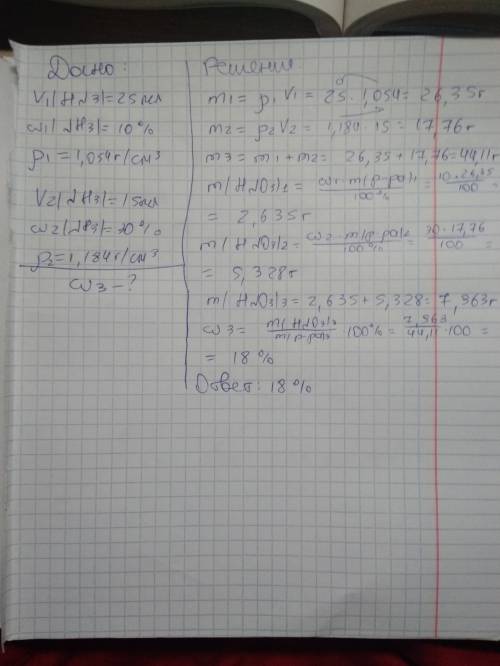 Дано:
V₁(HNO3)=25мл
ω₁(NH3)=10%
ρ₁=1,054г/см³
V2(NH3)=15мл
ω2(NH3)=30%
ρ₂=1,184г/см³
ω3-?
Решение
m1= ρ1 V1 = 25·1,054= 26,35г
m2= ρ2V2= 1,184·15=17,76г
m3= m1+m2= 26,35+17,76=44,11г
m(HNO3)1= ω1·m(р-ра)1/100% = 10·26,35/100 =
= 2,635г
m(HNO3)2= ω2·m(р-ра)2/100% = 30·17,76/100 =
= 5,328г
m(HNO3)3=2,635+5,328=7,963г
ω3= m(HNO3)3/m(р-ра)3 ·100%= 7,963/44,11·100 =
= 18%
Ответ: 18%